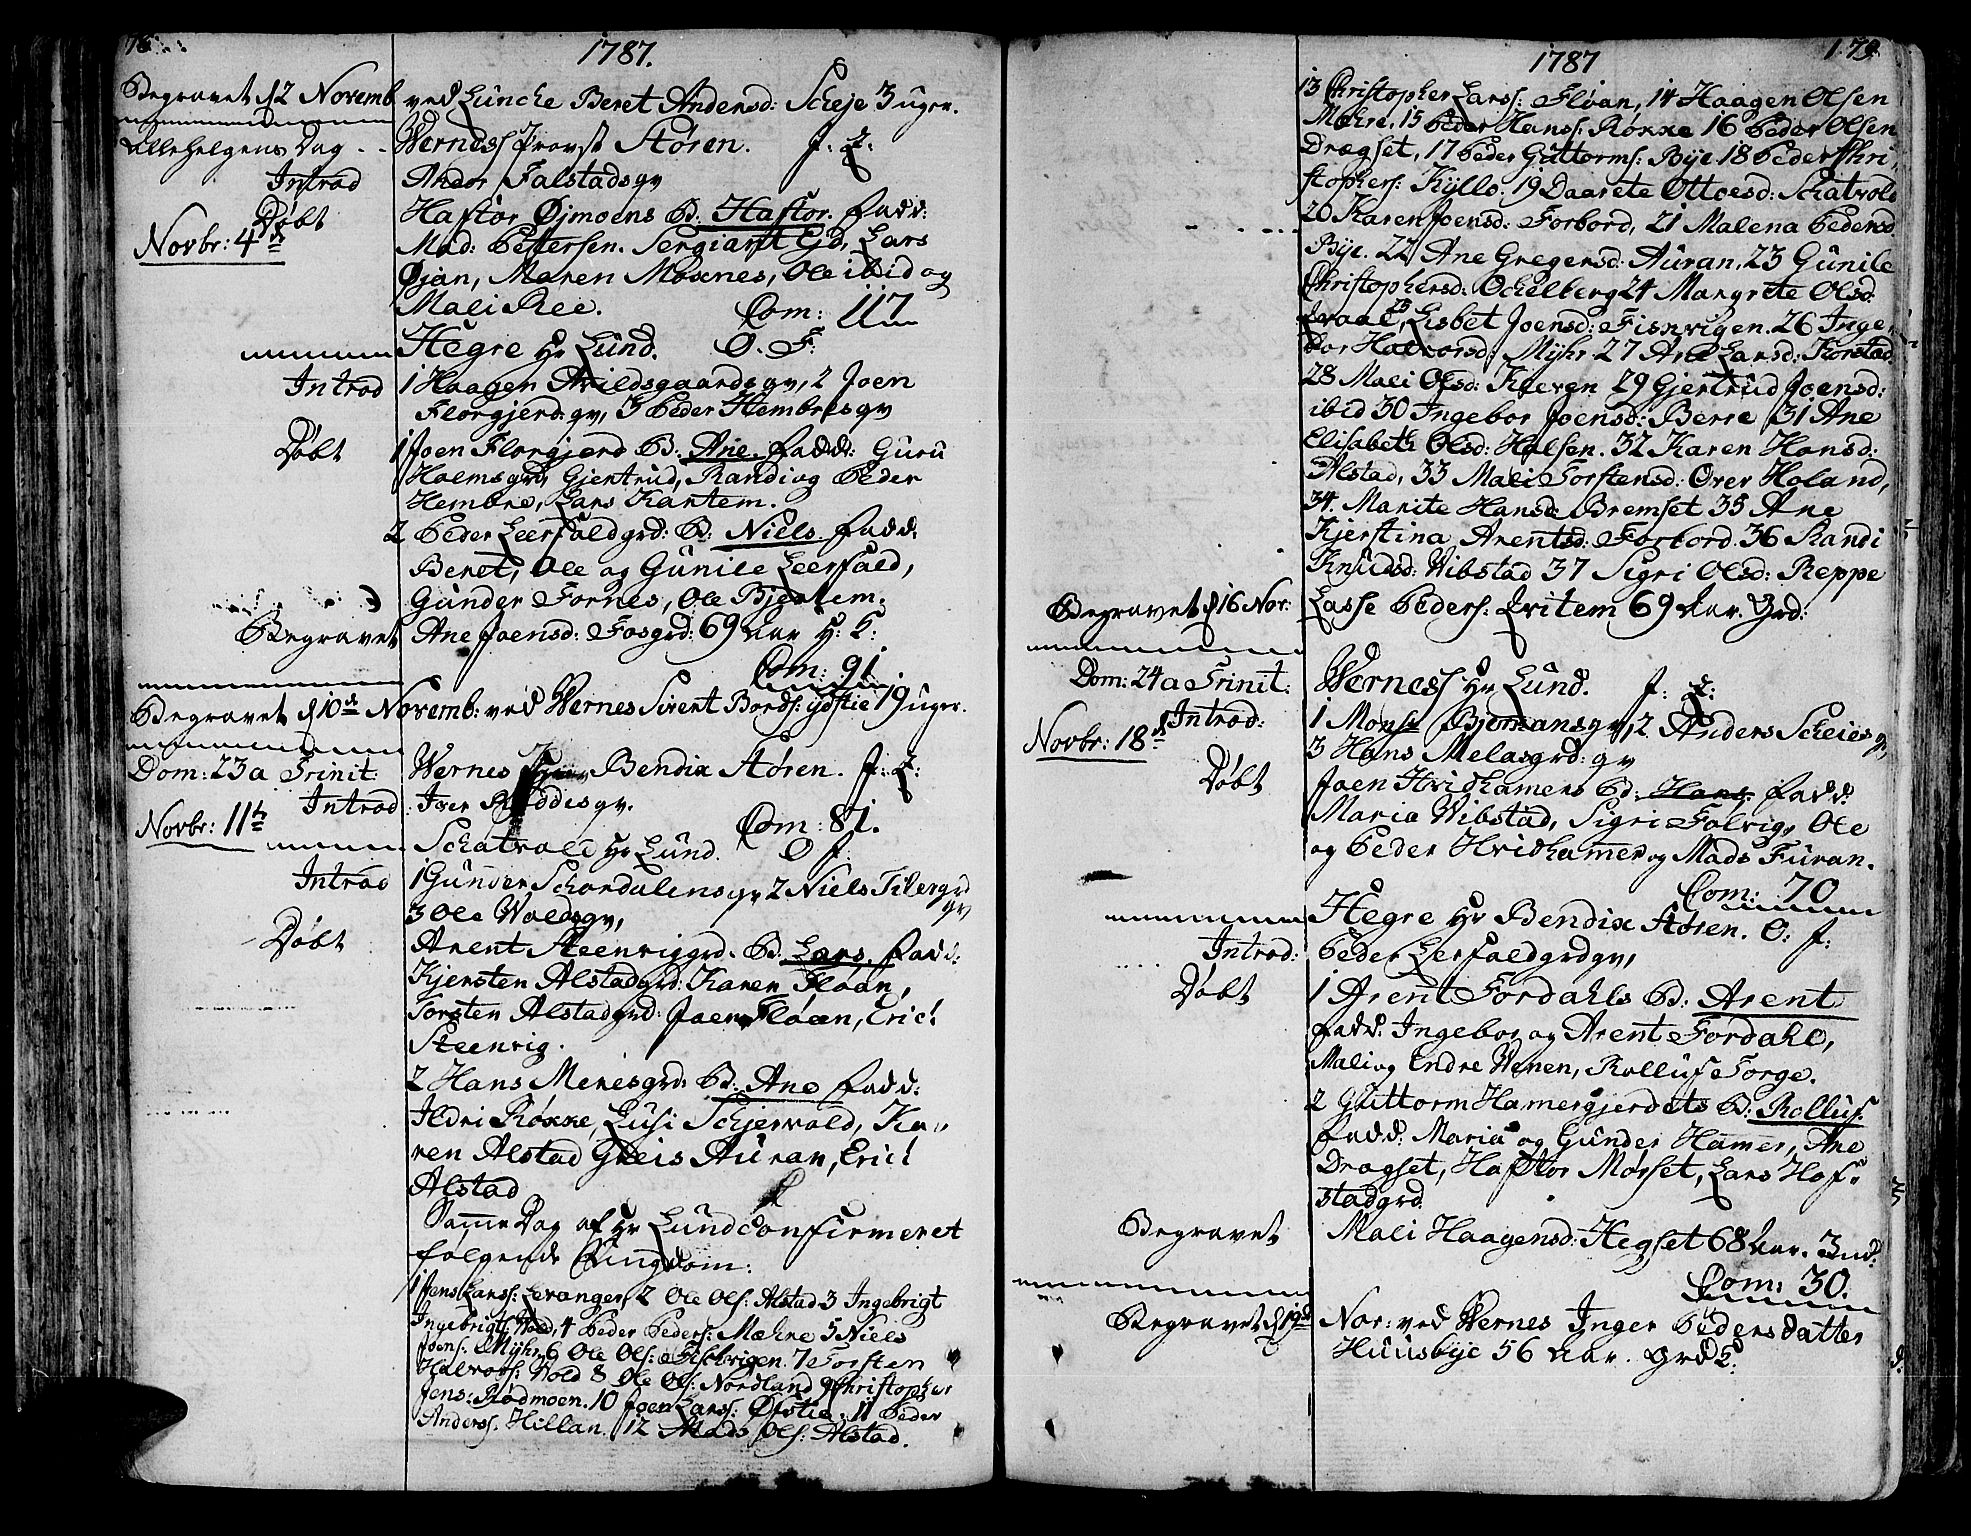 78
1787.
Begravet d 2 Novemb ved Lunche Beret Andersd: Scheje 3 uger.
Allehelgens Dag
Wernes Provst Støren. J. Z:
Introd
Andor Falstads qv
Døbt
Novbr: 4de
Haftor Øjmoens B. Haftor. Fadd:
Mad: Pettersen. Sergiant Ejd, Lars
Øjan, Maren Moxnes, Ole ibid og
Mali Ree. Com: 117
Hegre Hr Lund. O. F.
Introd
1 Haagen Avildsgaards qv, 2 Joen
Florgjerd: qv, 3 Peder Hembres qv
Døbt
1 Joen Florgjerd B. Ane. Fadd: Guru
Holmsgrd, Gjertrud, Randi og Peder
Hembre, Lars Kartem.
2 Peder Leerfaldgrd: B: Niels. Fadd:
Beret, Ole og Gunile Leerfald,
Gunder Fornes, Ole Bjertem.
Begravet
Ane Joensd: Fosgrd: 69 Aar H: K:
Com: 91
Begravet d 10de Novemb: ved Wernes Sivert Bords: ydstie 19 uger.
Dom: 23 a Trinit:
Wernes Bendix Støren. J: Z:
Introd:
Iver qv.
Novbr: 11te
Com: 81.
Schatvold Hr Lund. O J.
Introd
1 Gunder Schordalens qv 2 Niels Tilergrd
qv
3 Ole Wolds qv,
Døbt
Arent Steenviggrd. B. Lars. Fadd:
Kjersten Alstadgrd: Karen Fløan,
Torsten Alstadgrd: Joen Fløan, Erich
Steenvig.
2 Hans Meresgrd: B. Ane Fadd:
Ildri Røkke, Lusi Schjervold, Ka-
ren Alstad Greis Auran, Erich
Alstad
Samme Dag af Hr Lund Confirmeret
følgende Ungdom:
1 Jens Larss: Levanger, 2 Ole Ols: Alstad 3 Ingebrigt
Ingebrigts: Vold, 4 Peder Peders: Mæhre 5 Niels
Jens: Myhr, 6 Ole Ols: Fischvigen. 7 Torsten
Halvors: Vold 8 Ole Ols: Nordland 9 Christopher
Jens: Rødmoen. 10 Joen Larss: Øfstie. 11 Peder
Anders. Hillan. 12 Mads Ols: Alstad.
179
1787
13 Christopher Larss: Fløan, 14 Haagen Olsen
Mæhre. 15 Peder Hanss: Røkke 16 Peder Olsen
Dragset, 17 Peder Guttorms: Bye 18 Peder Chri-
stophers: Kyllo. 19 Daarete Ottoesd: Schatvold
20 Karen Joensd: Forbord, 21 Malena Pedersd
Bye. 22 Ane Gregersd: Auran, 23 Gunile
Christophersd: Ochelberg 24 Margrete Olsd:
25 Lisbet Joensd: Fiskvigen. 26 Inge-
bor Halvorsd: Myhr 27 Ane Larsd: Korstad
28 Mali Olsd: Kleven 29 Gjertrud Joensd:
ibid 30 Ingebor Joensd: Berre 31 Ane
Elisabeth Olsd: Halsen. 32 Karen Hansd:
Alstad, 33 Mali Torstensd: Over Holand,
34. Marite Hansd Bremset 35 Ane
Kjerstina Arentsd: Forbord. 36 Randi
Knudsd: Vibstad 37 Sigri Olsd: Reppe
Begravet d 16 Nov:
Lasse Peders: Qvitem 69 Aar. Grd:
Dom: 24 a Trinit:
Wernes Hr Lund. J: Z:
Introd:
1 Mons Bjermans qv, 2 Anders Scheies qv,
Novbr: 18de
3 Hans Melasgrd: qv
Døbt
Joen Hvidhamers B: Hans. Fadd:
Maria Vibstad, Sigri Folvig, Ole
og Peder Hvidhamer og Mads Furan.
Com: 70
Hegre Hr Bendix Støren. O: J:
Introd:
Peder Lerfaldgrd qv,
Døbt
1 Arent Fordahls B: Arent
Fadd: Ingebor og Arent Fordahl,
Mali og Endre Wenen, Rolluf Forge.
2 Guttorm Hamergjerdets B: Rolluf.
Fadd: Maria og Gunder Hamer, Ane
Dragset, Hafttor Mørset, Lars Hof-
stadgrd
Begravet
Mali Haagensd: Hegset 68 Aar. Ind:
Com: 30.
Begravet d 19de Nov: ved Wernes Inger Pedersdatter
Huusbye 56 Aar. Grd K: